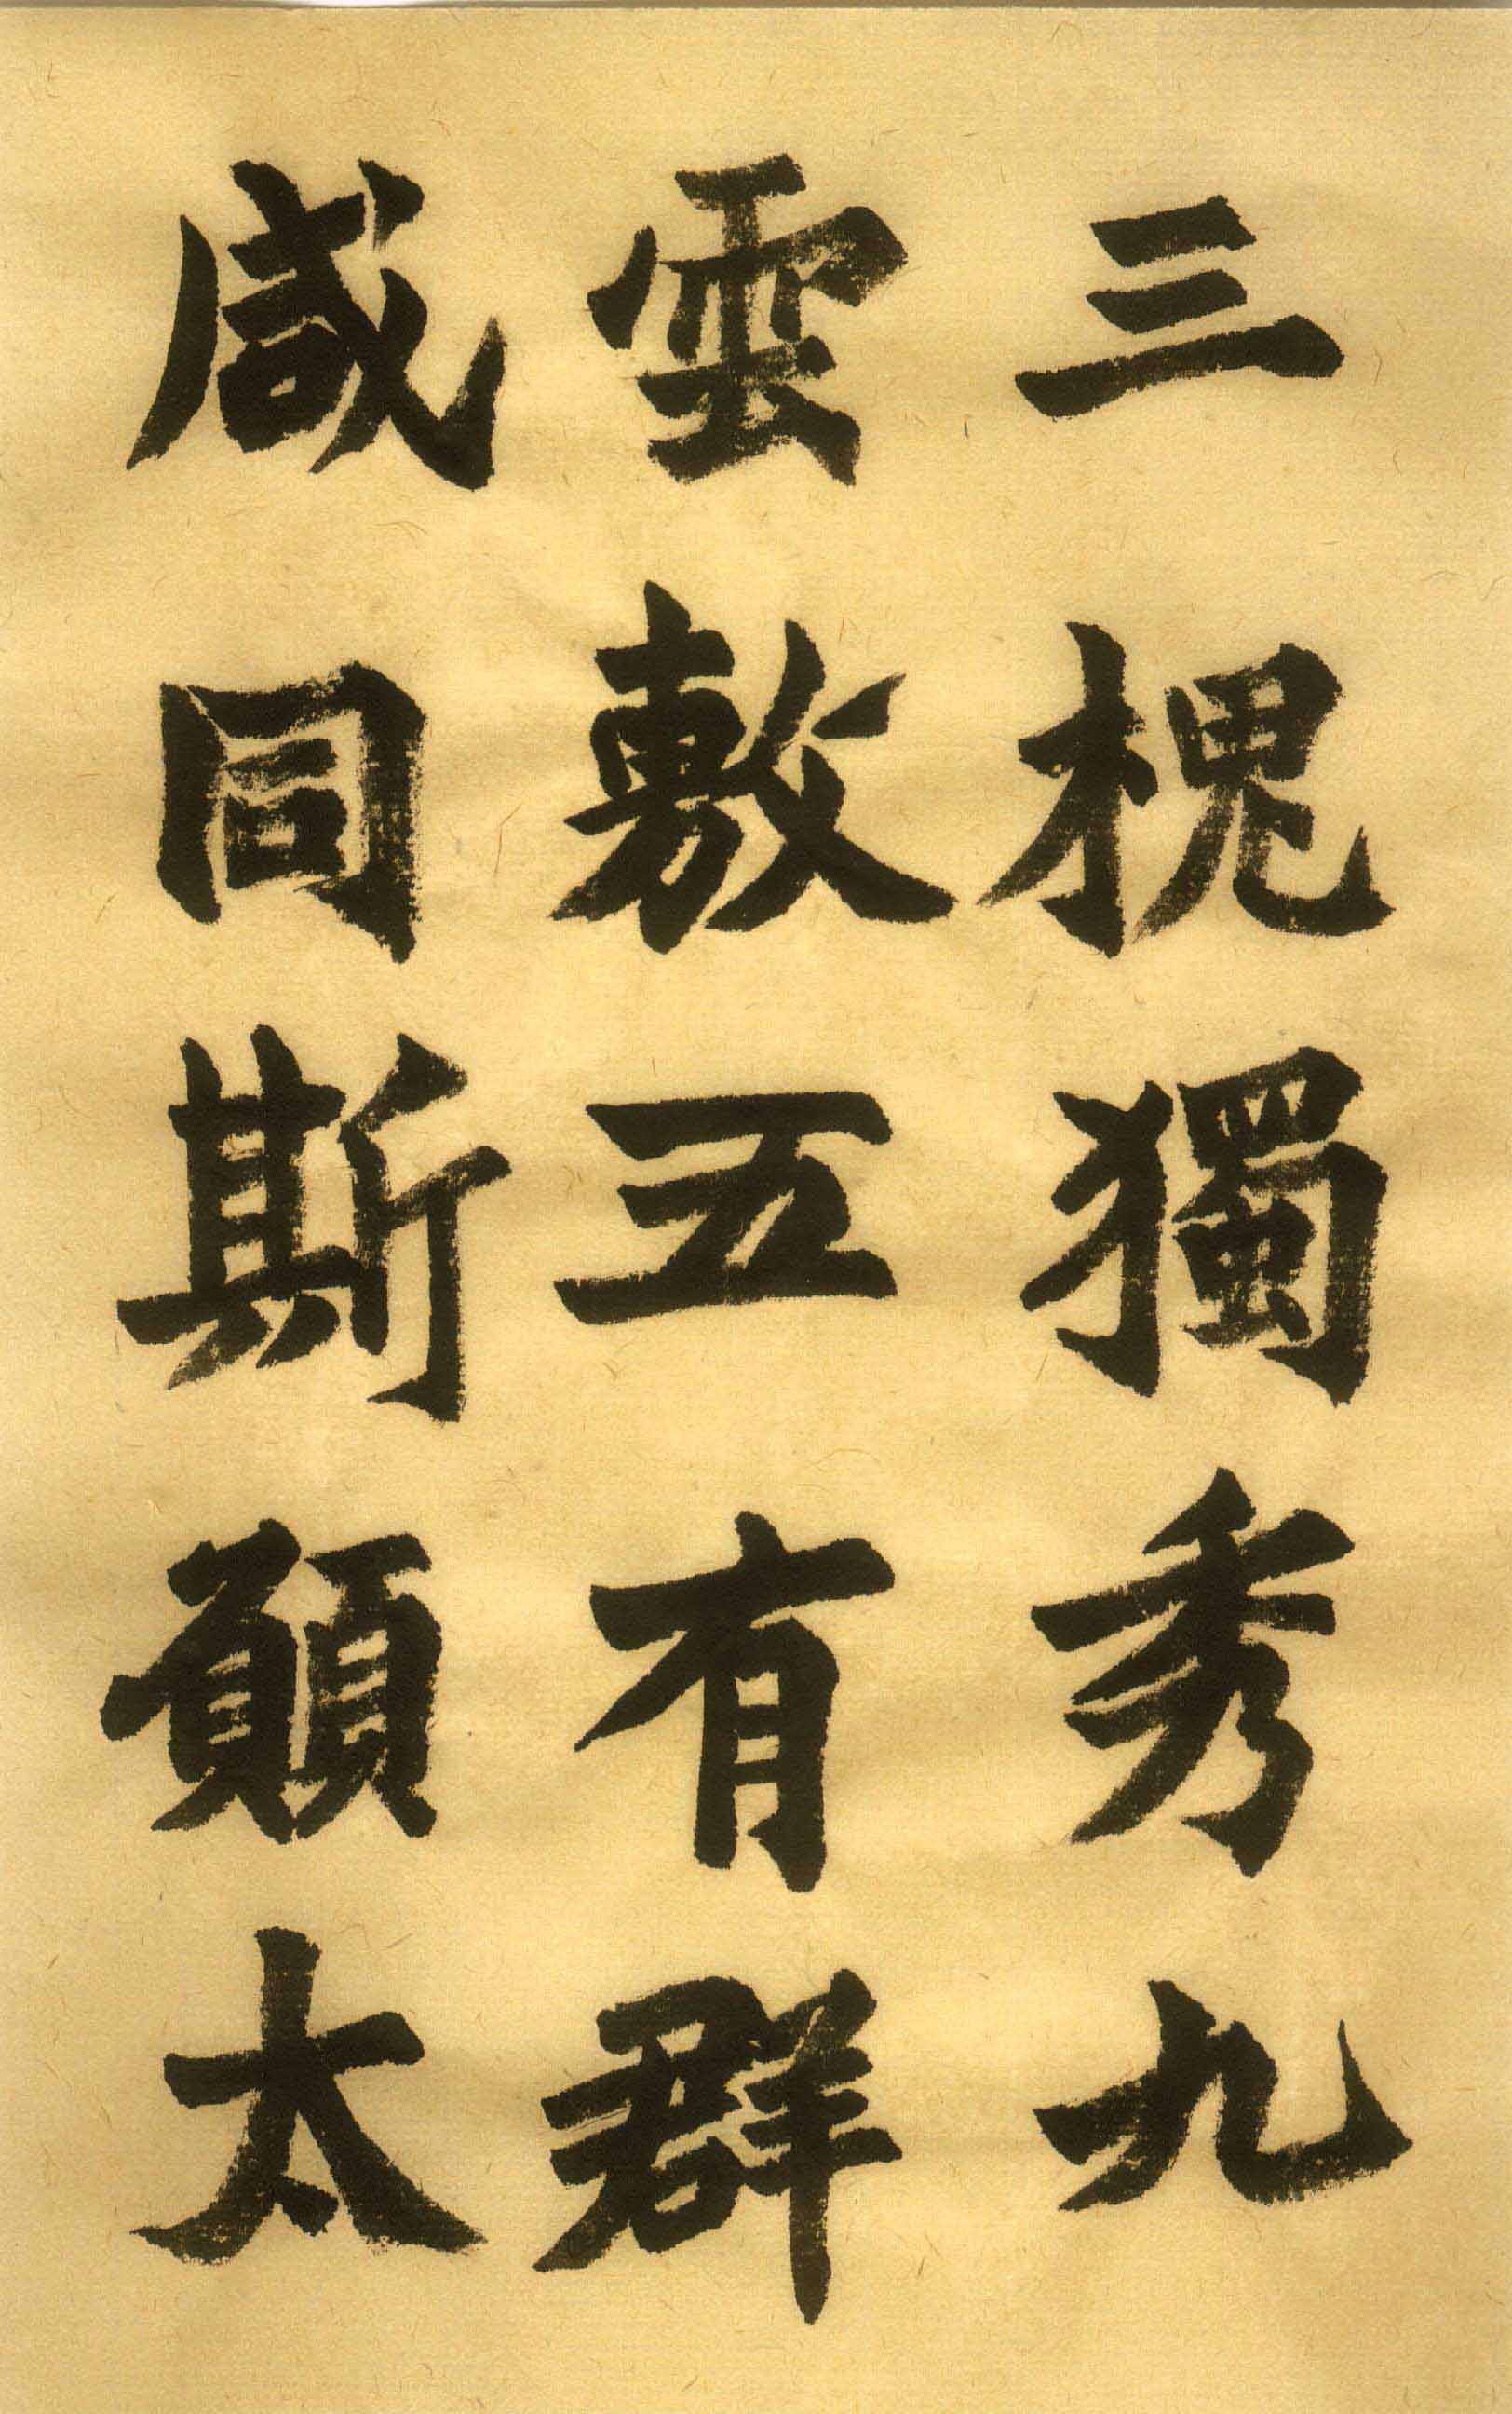 三槐獨秀九
雲敷五有群
咸同斯願太